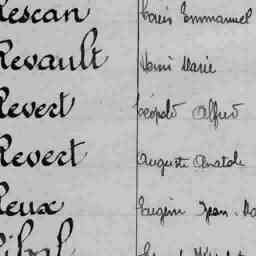 Rescan Louis Emmanuel
Revault Henri Marie
Revert Léopold Alfred
Revert Auguste Anatole
Reux Eugène Jean-